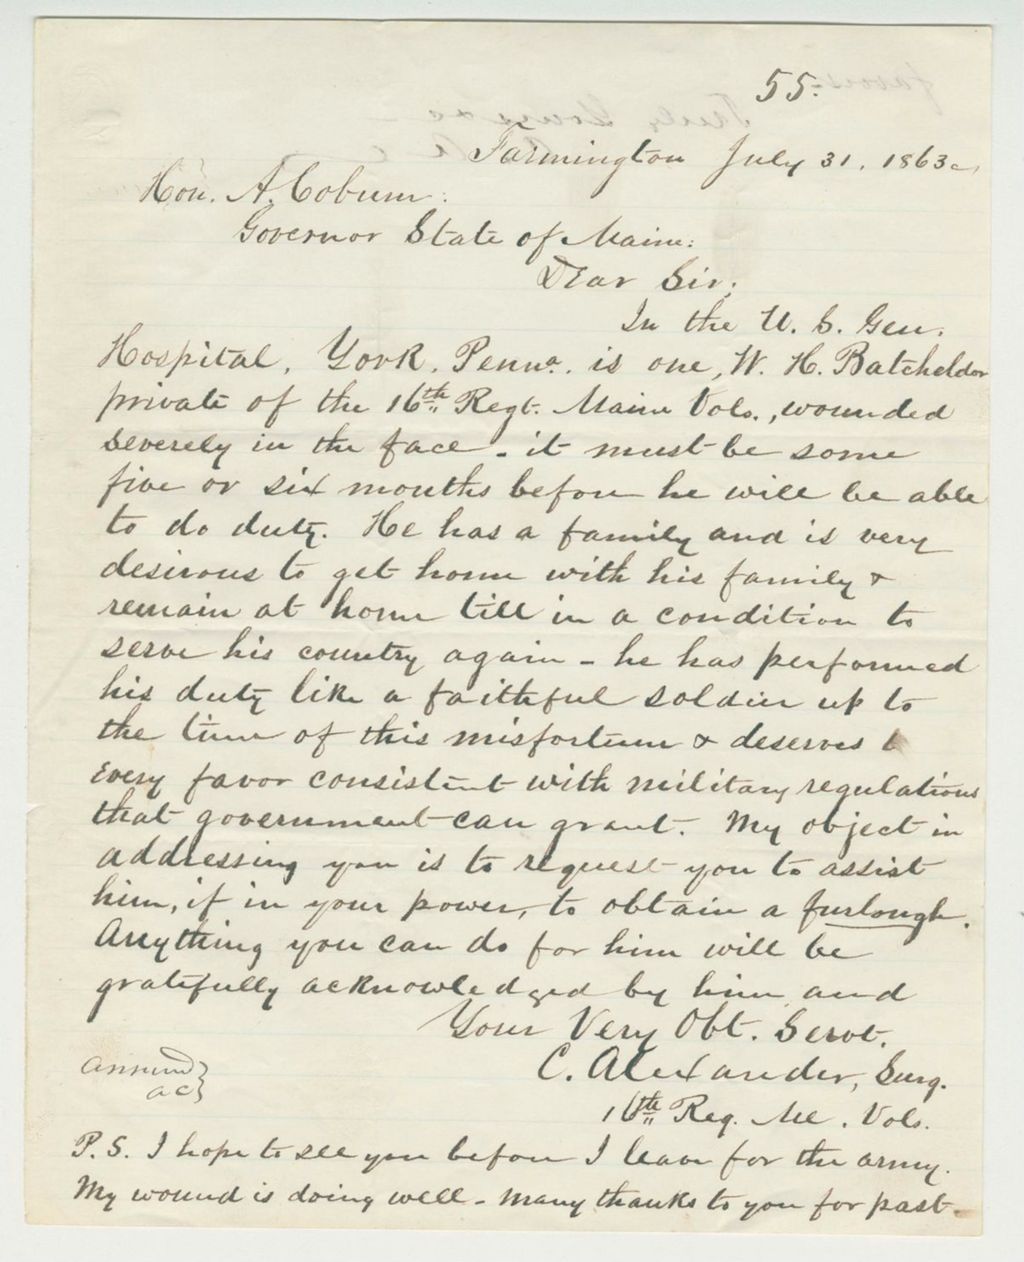 55.
Farmington July 31, 1863.
Hon. A. Coburn:
Governor State of Maine:
Dear Sir;
In the U. S. Gen.
Hospital, York, Penna. is one, W. H. Batcheldor
private of the 16th Regt. Maine Vols., wounded
severely in the face - it must be some
five or six months before he will be able
to do duty. He has a family and is very
desirous to get home with his family &
remain at home till in a condition to
serve his country again - he has performed
his duty like a faithful soldier up to
the time of this misfortune & deserves
every favor consistent with military regulations
that government can grant. My object in
addressing you is to request you to assist
him, if in your power, to obtain a furlough.
Anything you can do for him will be
gratefully acknowledged by him and
Your Very Obt. Servt.
C. Alexander, Surg.
16th Reg. Me. Vols.
P.S. I hope to see you before I leave for the army.
My wound is doing well - many thanks to you for past
favors-
Truly Yours &c